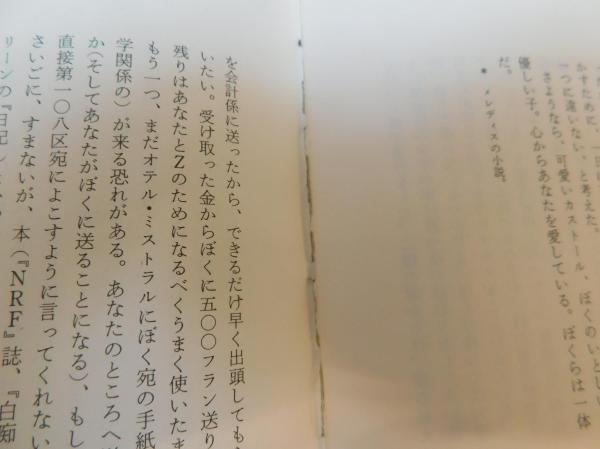 かすために、一日
一つに違いない、と考えた。
さようなら、可愛いカストール、ぼくのいとしい
優しい子。心からあなたを愛している。ぼくらは一体
だ。
* メレディスの小説。
を会計係に送ったから、できるだけ早く出頭しても
いたい。受け取った金からぼくに五〇〇フラン送り
残りはあなたとZのためになるべくうまく使いたま
もう一つ、まだオテル・ミストラルにぼく宛の手紙
学関係の)が来る恐れがある。あなたのところへ
か(そしてあなたがぼくに送ることになる)、もし
直接第一〇八区宛によこすように言ってくれない
さいごに、すまないが、本(『NRF』誌、『白痴
リーンの『日記